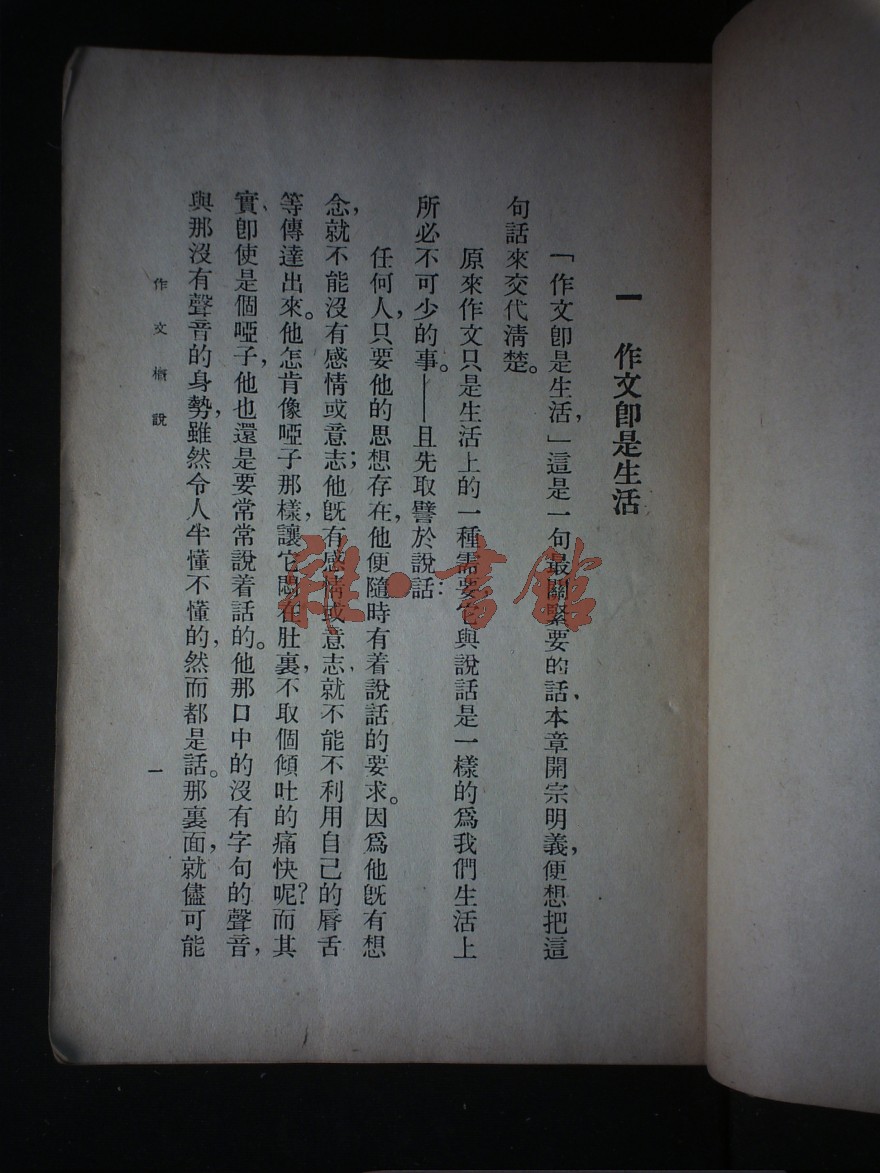 一　作文卽是生活
「作文卽是生活，」這是一句最關緊要的話．本章開宗明義，便想把這
句話來交代淸楚。
原來作文只是生活上的一種需要，它與說話是一樣的爲我們生活上
所必不可少的事。——且先取譬於說話：
任何人，只要他的思想存在，他便隨時有着說話的要求。因爲他旣有想
念，就不能沒有感情或意志；他旣有感情或意志，就不能不利用自己的脣舌
等傳達出來。他怎肯像啞子那樣，讓它悶在肚裏，不取個傾吐的痛快呢？而其
實，卽使是個啞子，他也還是要常常說着話的。他那口中的沒有字句的聲音，
與那沒有聲音的身勢，雖然令人半懂不懂的，然而都是話。那裏面，就儘可能
作文概說
一
雜·書館